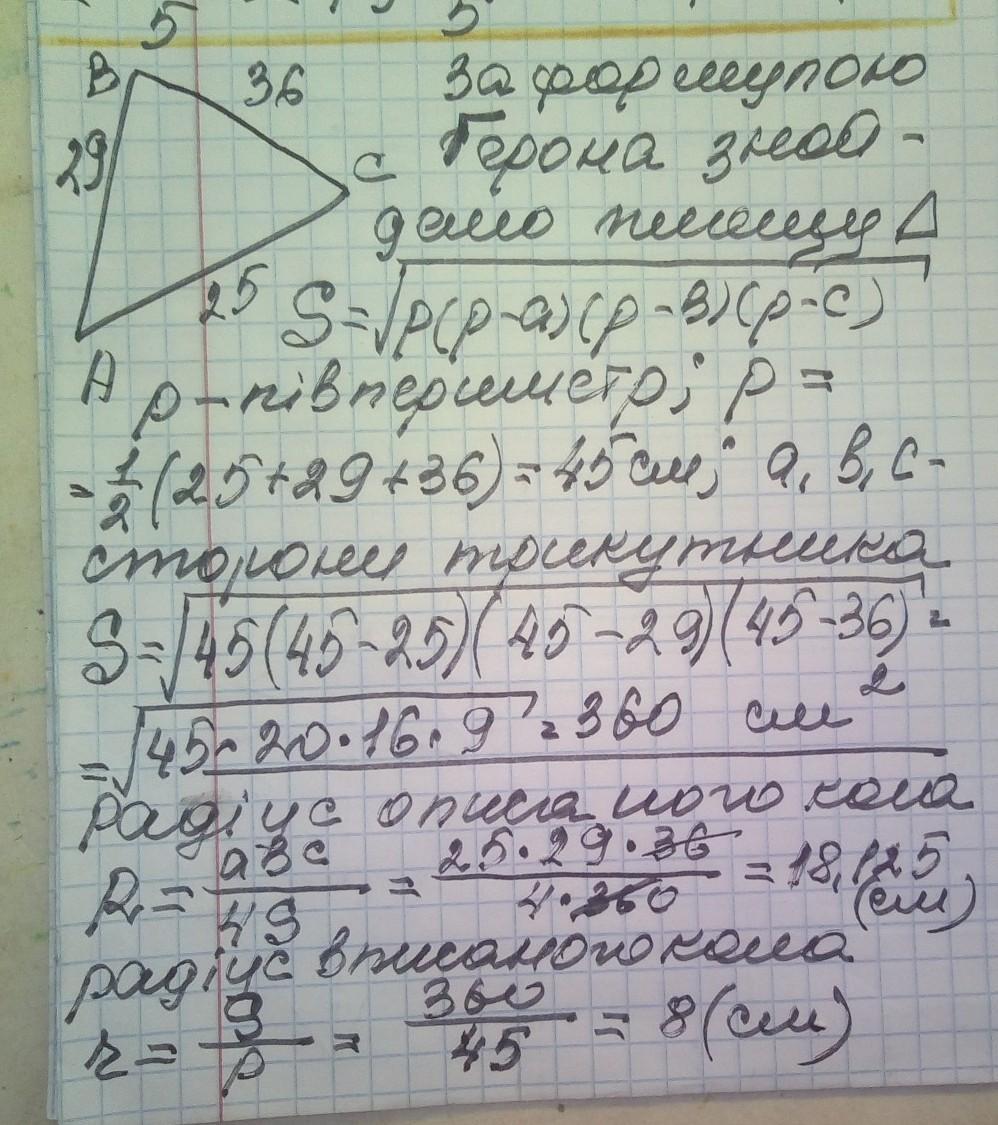 5 5
B 36 За формулою
29 C Герона знай-
демо площу Δ
25 S=√p(p-a)(p-в)(p-c)
A p-півпериметр; p=
=1/2(25+29+36)=45см; a, в, c-
сторони трикутника
S=√45(45-25)(45-29)(45-36)=
=√45·20·16·9=360 см²
радіус описаного кола
R=aвc/4S=25·29·36/4·360=18,125
(см)
радіус вписаного кола
r=S/p=360/45=8(см)